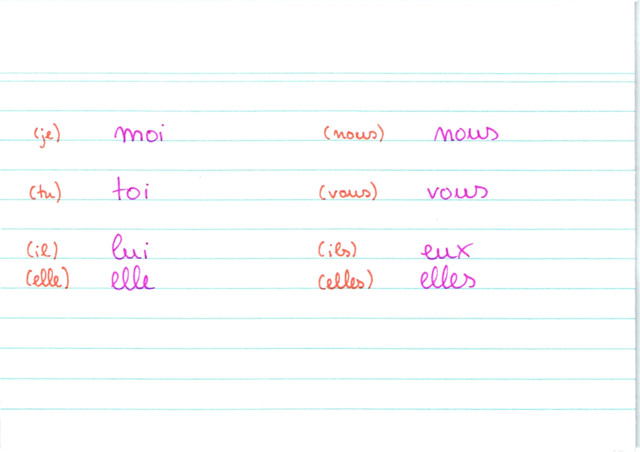 (je) moi (nous) nous
(tu) toi (vous) vous
(il) lui (ils) eux
(elle) elle (elles) elles